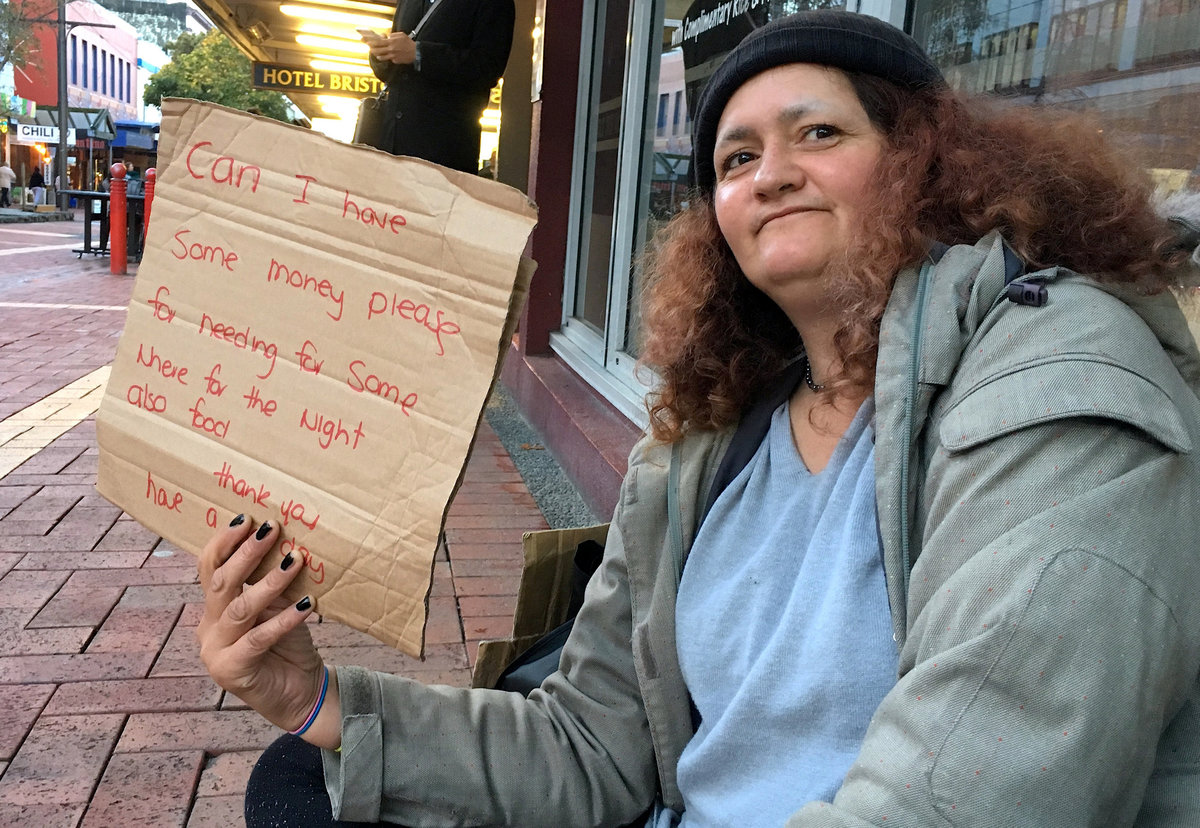 HOTEL BRIST
CHILI
with Complimentary Rice &
Can I have
Some money please
for needing for Some
Where for the Night
also food
thank you
have a
day